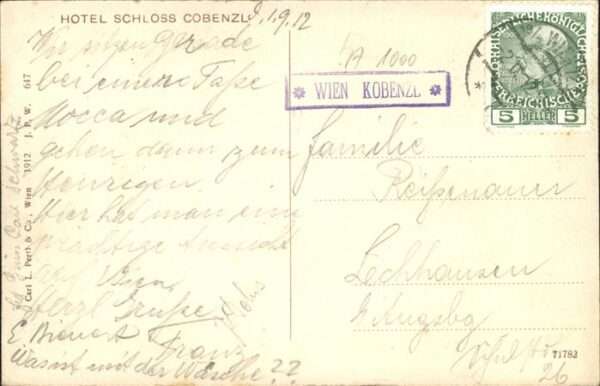 HOTEL SCHLOSS COBENZL
9.1.9.12
Wir sitzen gerade
bei einer Taße
Mocca und
gehen dann zum
Heurigen.
Hier hat man eine
prächtige Aussicht
auf Wien
Herzl Grüße
Franz
Was ist mit der Wäsche??
Carl Schwartz
Carl L. Perth & Co., Wien 1912 J. P. W. 647
A 1000
* WIEN KOBENZL *
5 HELLER 5
Familie
Reißenauer
Lechhausen
b/Augsbg
Schulstr
26
71782